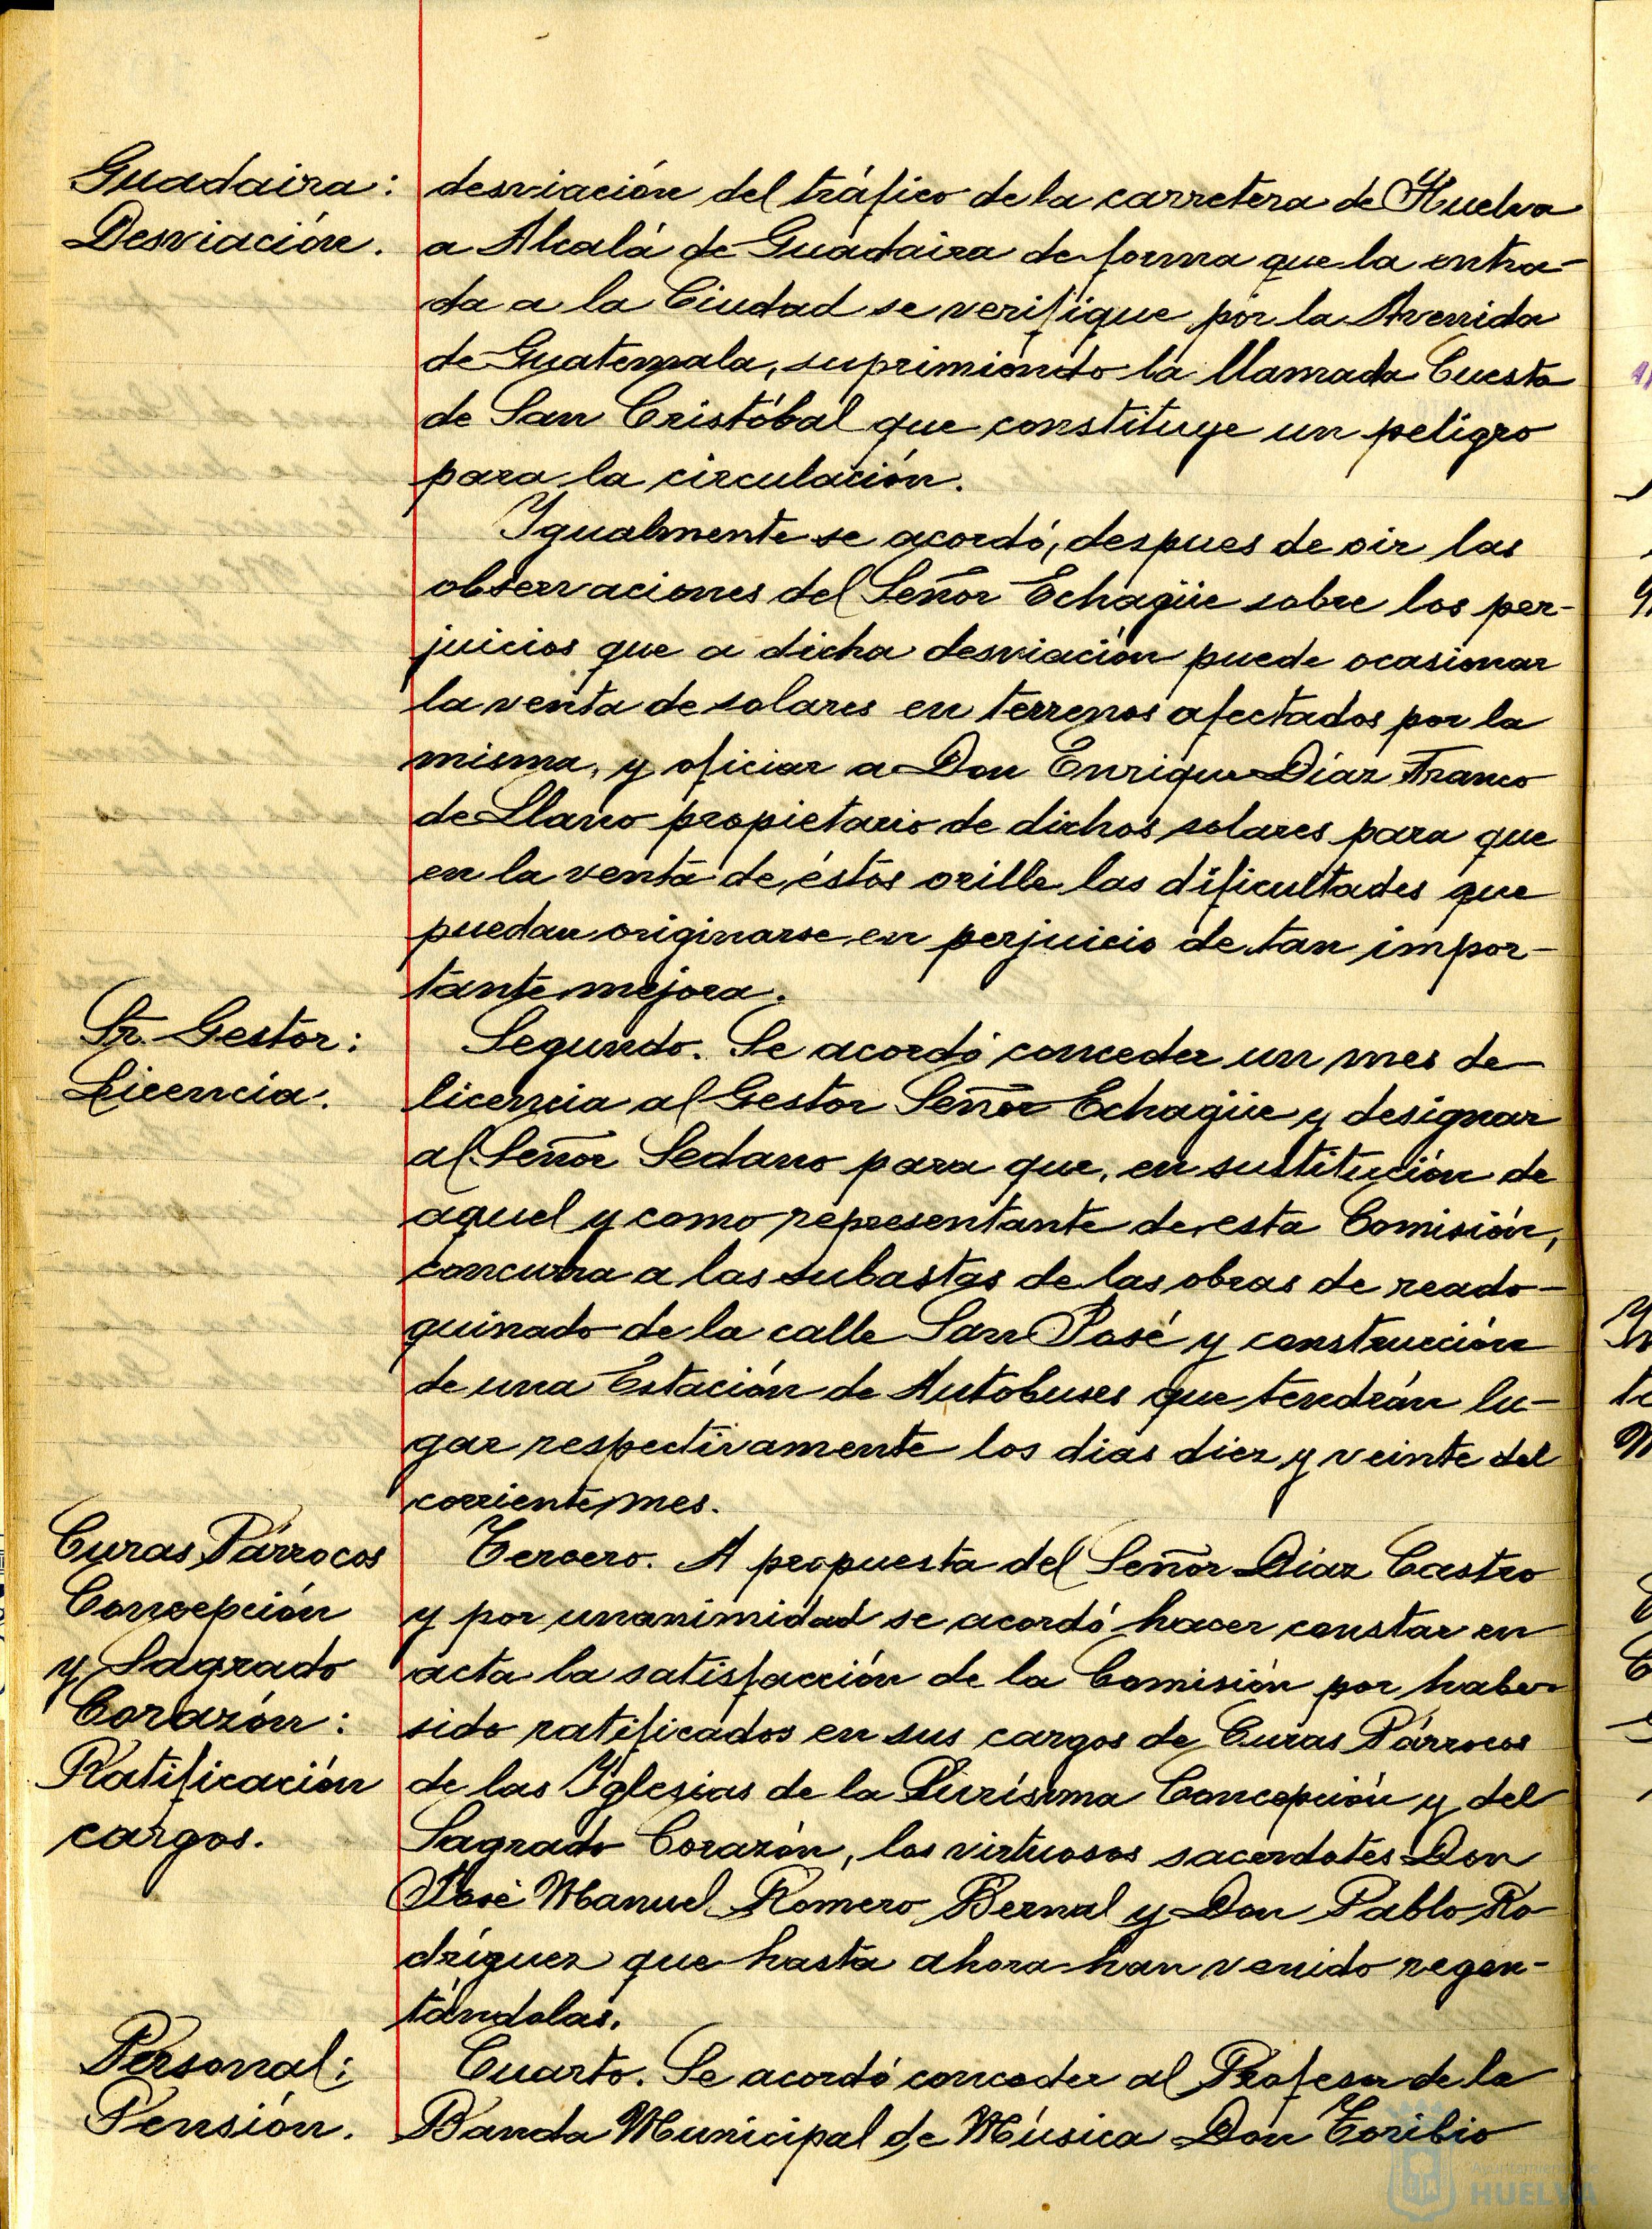 Guadaira:
Desviación.
desviación del tráfico de la carretera de Huelva
a Alcalá de Guadaira de forma que la entra-
da a la Ciudad se verifique por la Avenida
de Guatemala, suprimiendo la llamada Cuesta
de San Cristóbal que constituye un peligro
para la circulación.
Igualmente se acordó, despues de oir las
observaciones del Señor Echagüe sobre los per-
juicios que a dicha desviación puede ocasionar
la venta de solares en terrenos afectados por la
misma, y oficiar a Don Enrique Díaz Franco
de Llano propietario de dichos solares para que
en la venta de éstos orille las dificultades que
puedan originarse en perjuicio de tan impor-
tante mejora.
Sr. Gestor:
Licencia.
Segundo. Se acordó conceder un mes de
licencia al Gestor Señor Echagüe y designar
al Señor Sedano para que, en sustitución de
aquel y como representante de esta Comisión,
concurra a las subastas de las obras de reado-
quinado de la calle San José y construcción
de una Estación de Autobuses que tendrán lu-
gar respectivamente los dias diez y veinte del
corriente mes.
Curas Párrocos
Concepción
y Sagrado
Corazón:
Ratificación
cargos.
Tercero. A propuesta del Señor Díaz Castro
y por unanimidad se acordó hacer constar en
acta la satisfacción de la Comisión por haber
sido ratificados en sus cargos de Curas Párrocos
de las Iglesias de la Purísima Concepción y del
Sagrado Corazón, los virtuosos sacerdotes Don
José Manuel Romero Bernal y Don Pablo Ro-
dríguez que hasta ahora han venido regen-
tándolas.
Personal:
Pensión.
Cuarto. Se acordó conceder al Profesor de la
Banda Municipal de Música Don Toribio
Ayuntamiento de
HUELVA